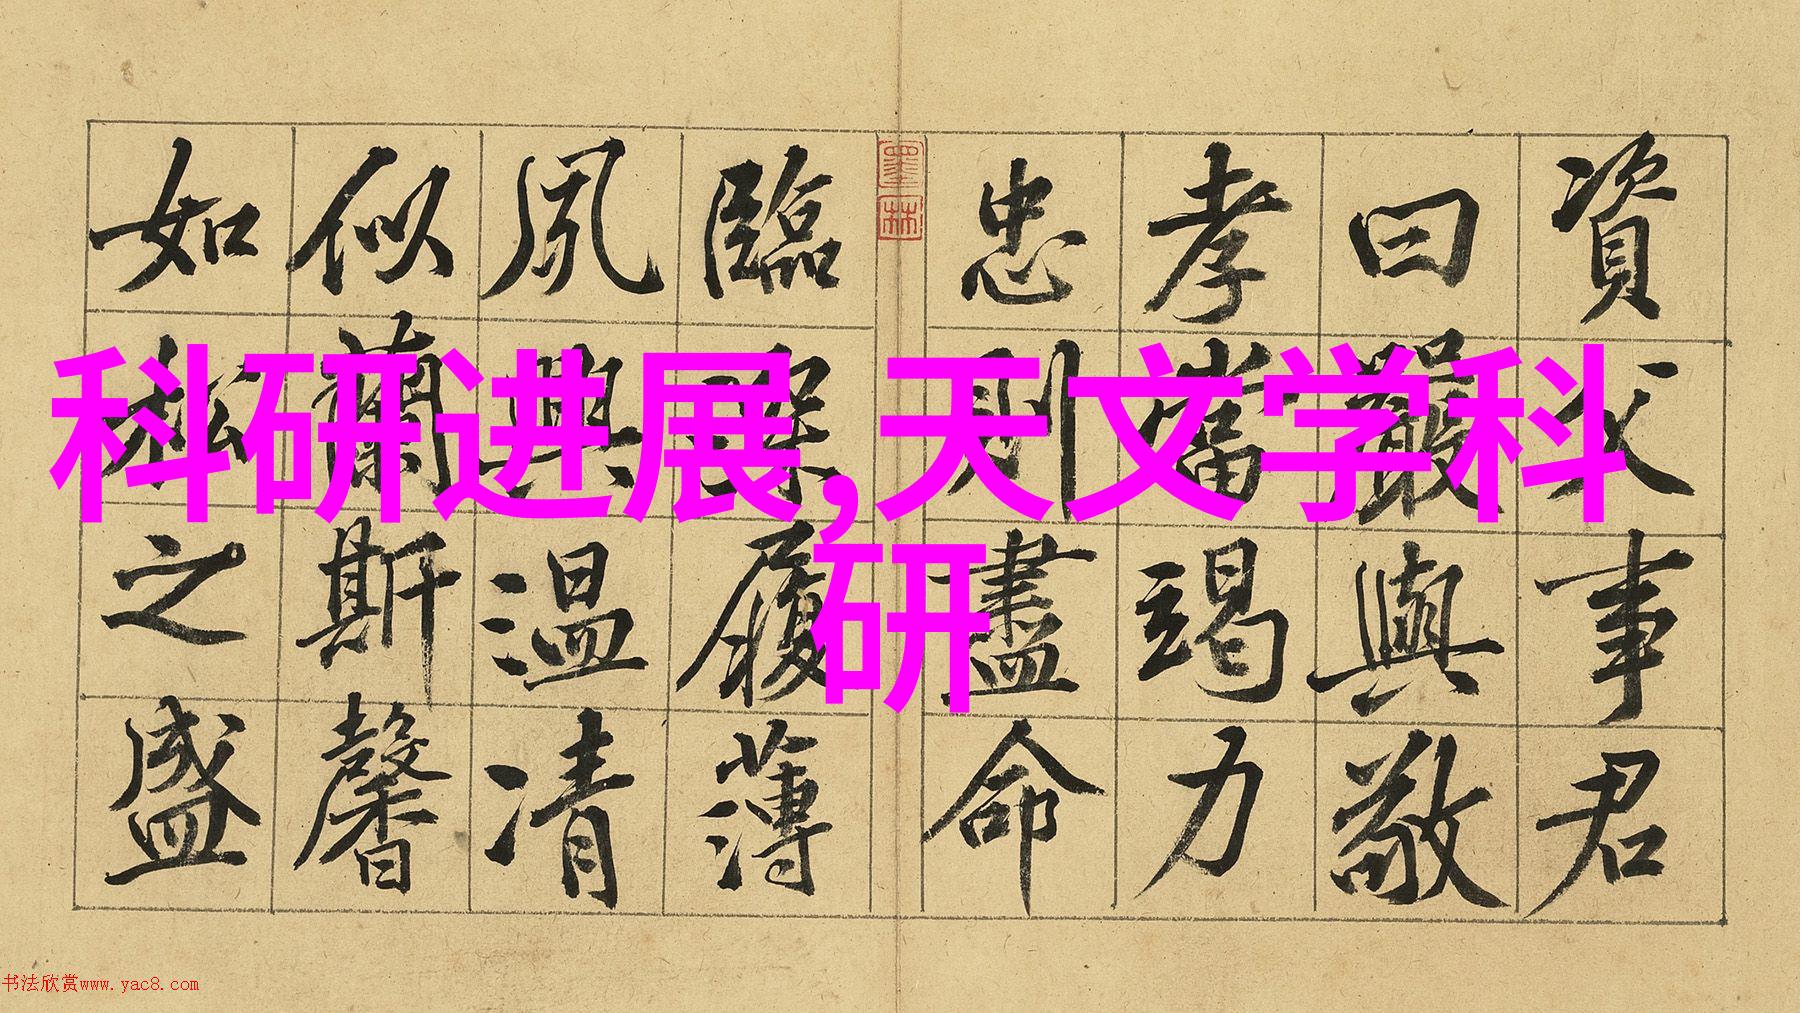 科研进展,天文学科
研
資父事君
曰嚴與敬
孝當竭力
忠則盡命
墨林
臨深履薄
夙興温凊
似蘭斯馨
如松之盛
书法欣赏www.yac8.com